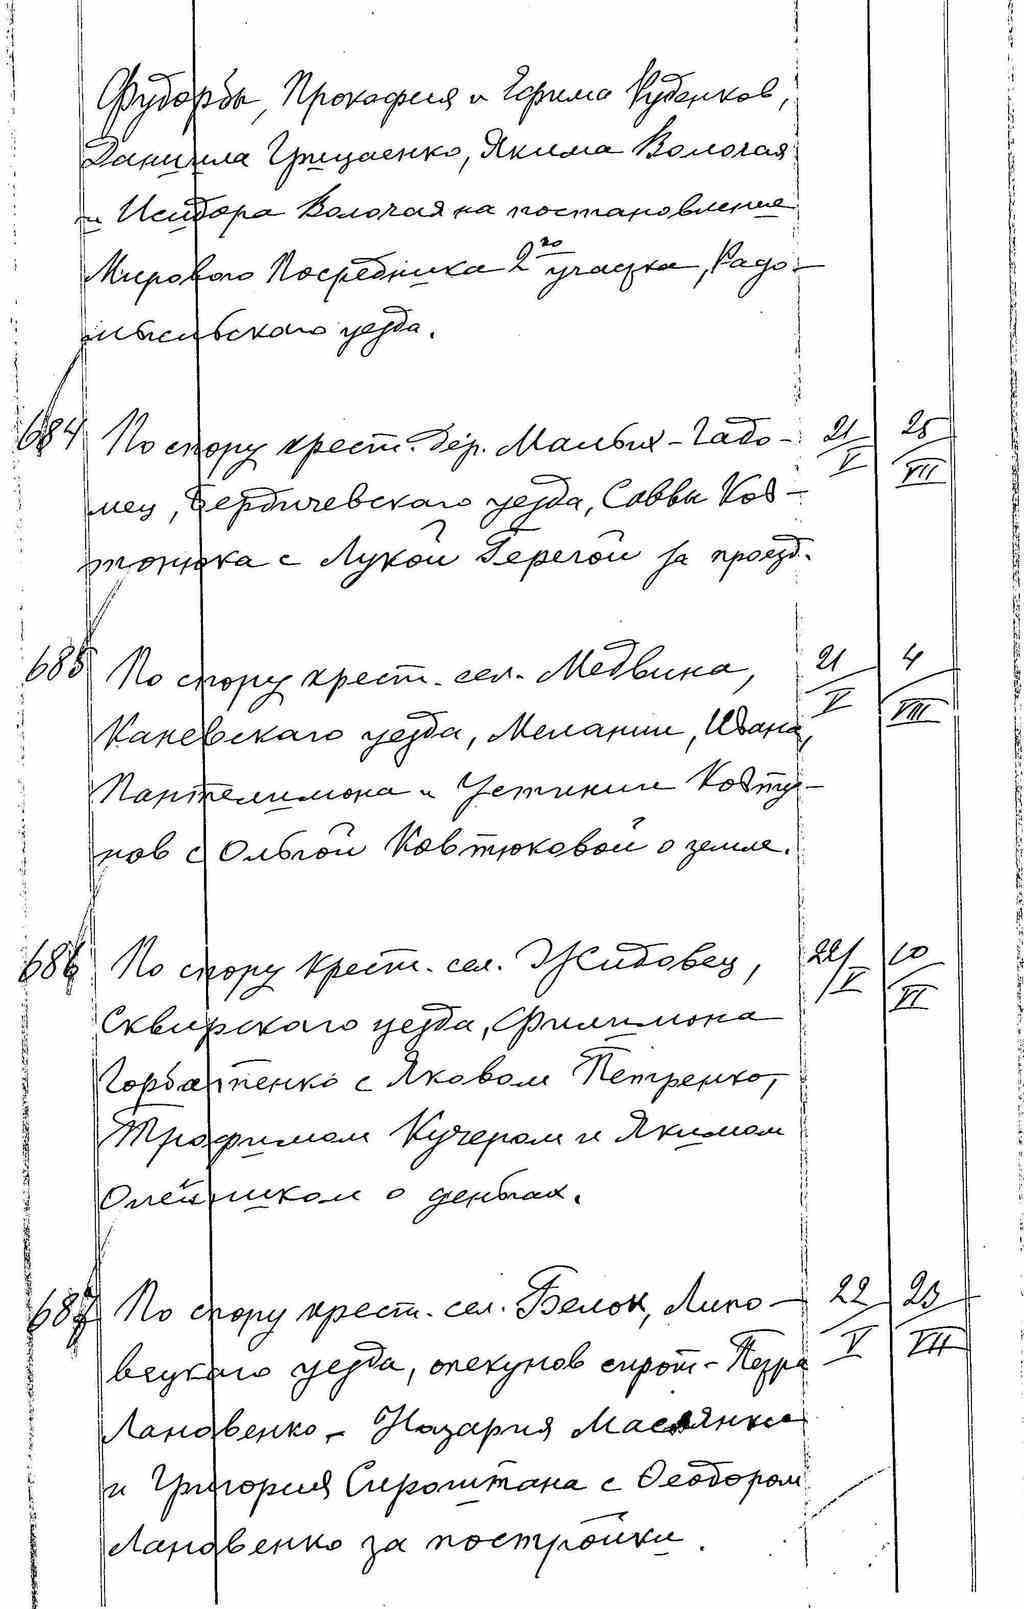 Фудорбы, Прокофия и Ефима Руденков,
Даниила Грицаенко, Якима Волочая
и Исидора Волочая на постановление
Мирового Посредника 2го участка, Радо-
мысльскаго уезда.
684 По спору крест. дер. Малых-Гадо- 21/V 25/VII
мец, Бердичевскаго уезда, Саввы Ков-
тонюка с Лукой Герегой за проезд.
685 По спору крест. сел. Медвина, 21/V 4/VIII
Каневскаго уезда, Мелании, Ивана,
Пантелимона и Устинии Ковту-
нов с Ольгой Ковтюковой о земле.
686 По спору крест. сел. Жидовец, 22/V 10/VI
Сквирскаго уезда, Филимона
Горбатенко с Яковом Петренко,
Трофимом Кучером и Якимом
Олейником о деньгах.
687 По спору крест. сел. Белок, Липо- 22/V 23/VII
вецкаго уезда, опекунов сирот - Петра
Лановенко - Назария Маслянки
и Григория Сироштана с Феодором
Лановенко за постройки.